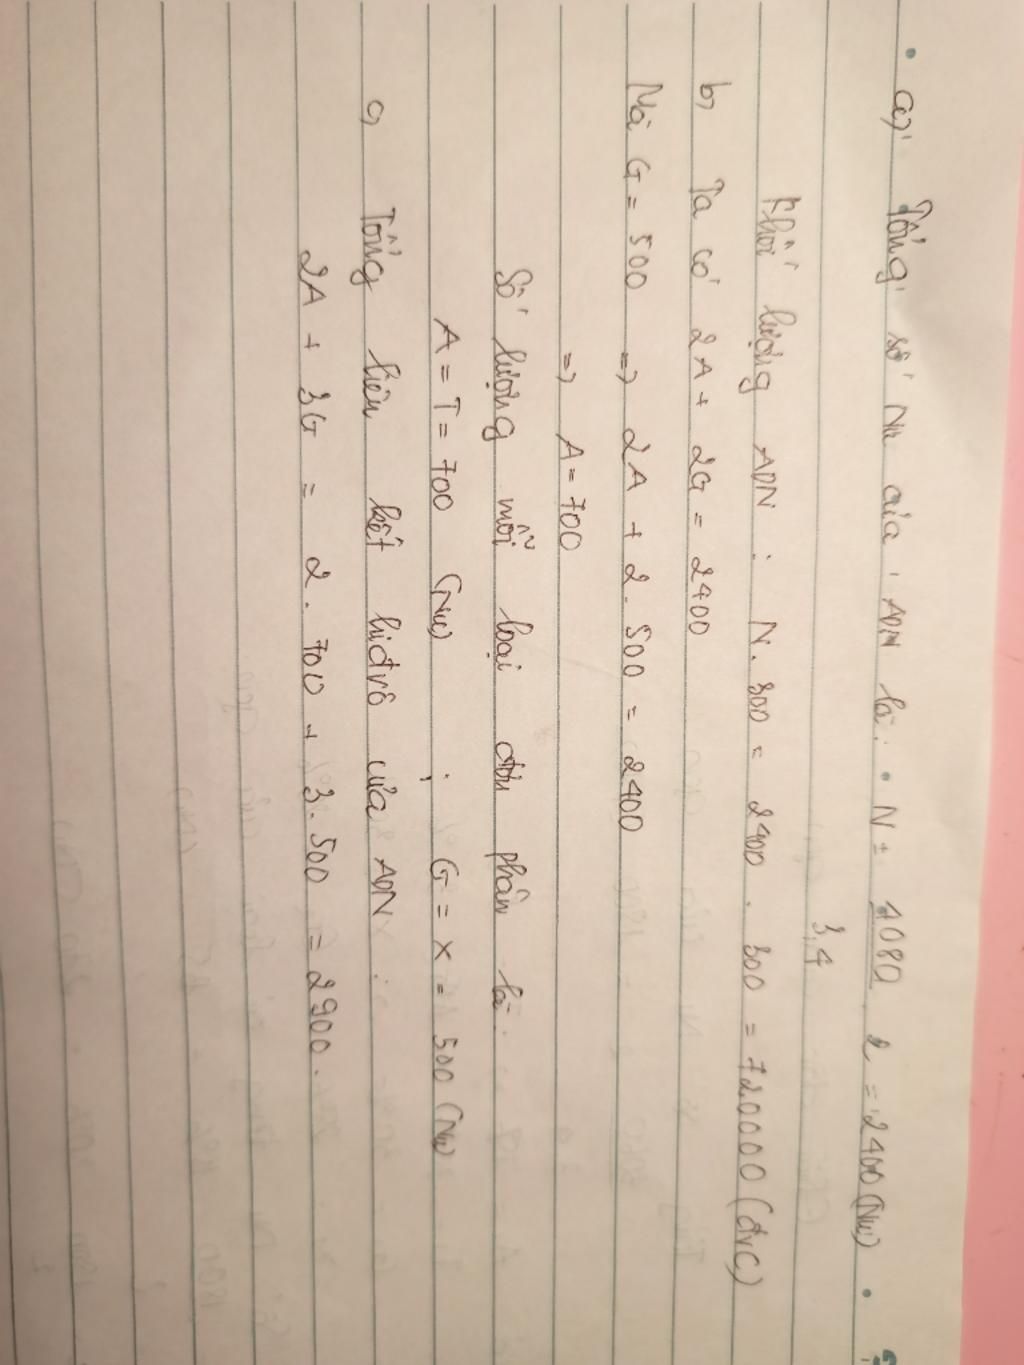 a, Tổng số Nu của ADN là: N = 4080 . 2 = 2400 (Nu)
3,4
Khối lượng ADN : N. 300 = 2400 . 300 = 720000 (đvC)
b, Ta có 2A + 2G = 2400
Mà G = 500 => 2A + 2. 500 = 2400
=> A = 700
Số lượng mỗi loại đơn phân là:
A = T = 700 (Nu) ; G = X = 500 (Nu)
c, Tổng liên kết hiđrô của ADN :
2A + 3G = 2. 700 + 3. 500 = 2900.